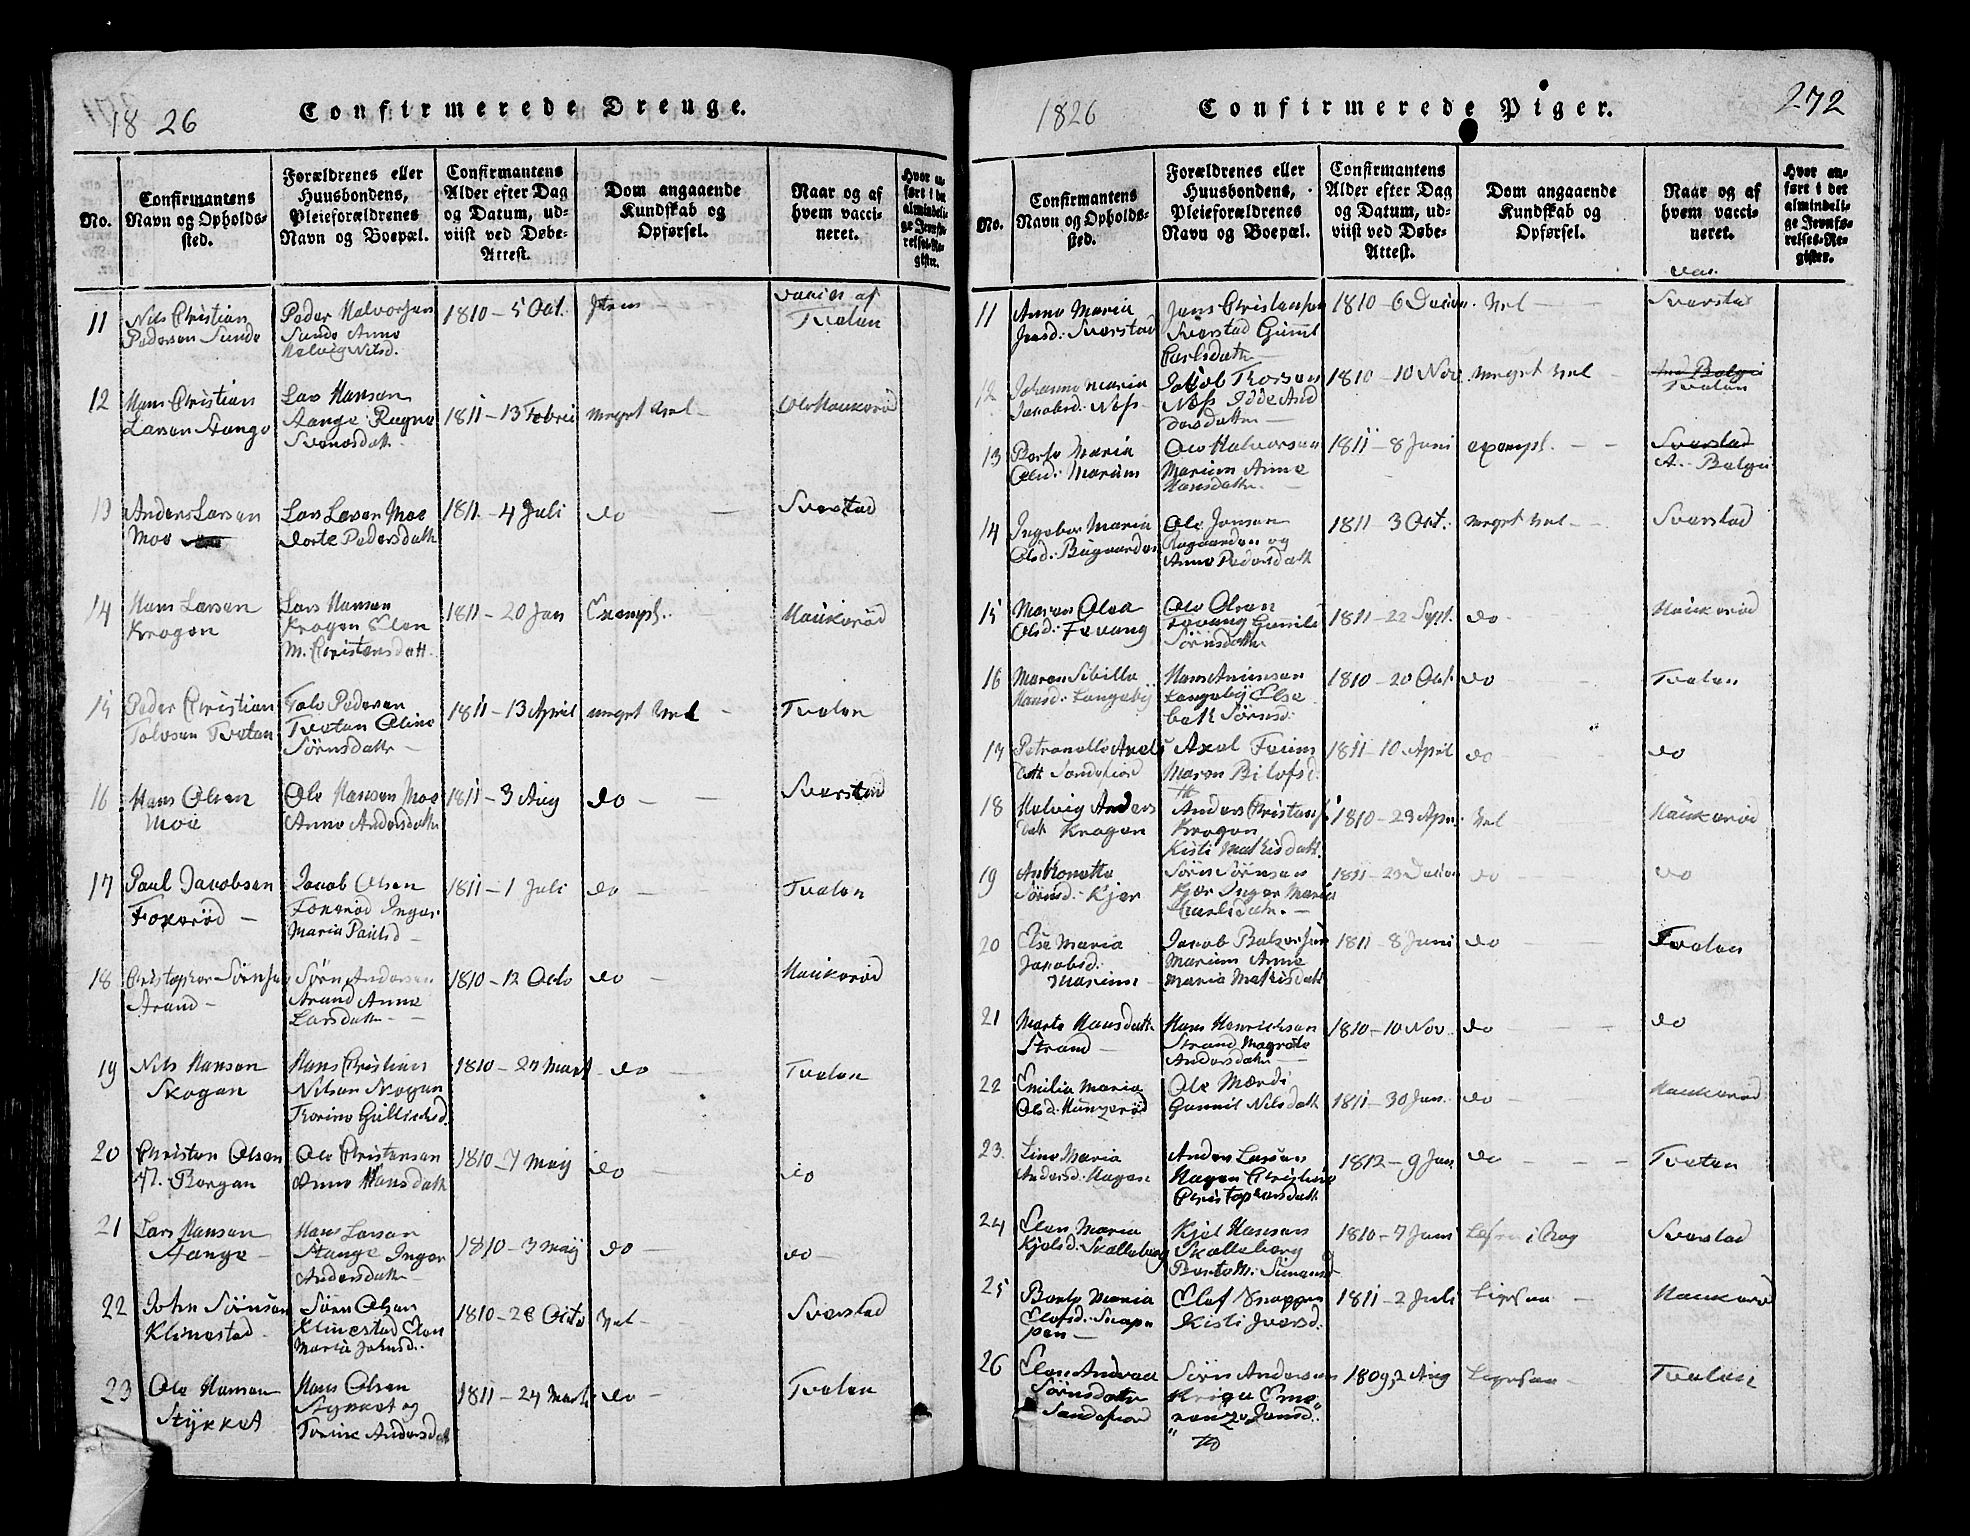 1826
Confirmerede Drenge.
No.
Confirmantens
Navn og Opholds-
sted.
Forældrenes eller
Huusbondens,
Pleieforældrenes
Navn og Boepæl.
Confirmantens
Alder efter Dag
og Datum, ud-
viist ved Døbe-
Attest.
Dom angaaende
Kundskab og
Opførsel.
Naar og af
hvem vacci-
neret.
Hvor an-
ført i det
almindeli-
ge Jevnfø-
relses-Re-
gister.
11
Nils Christian
Pedersen Sunde
Peder Halvorsen
Sunde Anne
Helvig Nilsd.
1810 - 5 Oct.
Item
vacin af
Tveten
12
Hans Christian
Larsen Stange
Lars Hansen
Stange Ragne
Svensdatt.
1811 - 13 Febri
meget vel
Ole Haukerød
13
Anders Larsen
Moe
Lars Larsen Moe
Dorte Pedersdatt
1811 - 4 Juli
do
Sverstad
14
Hans Larsen
Krogen
Lars Hansen
Krogen Elen
M. Christensdatt.
1811 - 20 Jan
Exempl.
Haukerød
15
Peder Christian
Tolvsen Tveten
Tolv Pedersen
Tveten Oline
Sørnsdatt
1811 - 13 April
meget vel
Tveten
16
Hans Olsen
Moe
Ole Hansen Moe
Anne Andersdatt
1811 - 3 Aug
do
Sverstad
17
Paul Jacobsen
Foxerød
Jacob Olsen
Foxerød Inger
Maria Paulsd
1811 - 1 Juli
do
Tveten
18
Christopher Sørnsen
Strand
Sørn Andersen
Strand Anne
Larsdatt
1810 - 12 Octo
do
Haukerød
19
Nils Hansen
Skogen
Hans Christian
Nilsen Skogen
Torine Gullichsd.
1810 - 27 Mart
do
Tveten
20
Christen Olsen
N. Borgen
Ole Christensen
Anne Hansdatt
1810 - 7 May
do
do
21
Lars Hansen
Stange
Hans Larsen
Stange Inger
Andersdatt
1810 - 3 May
do
do
22
John Sørnsen
Klinestad
Sørn Olsen
Klinestad Elen
Maria Johnsd.
1810 - 28 Octo
Vel
Sverstad
23
Ole Hansen
Stykket
Hans Olsen
Stykket og
Torine Andersdatt
1811 - 24 Mart
do
Tveten
1826
Confirmerede Piger.
272
No.
Confirmantens
Navn og Opholds-
sted.
Forældrenes eller
Huusbondens,
Pleieforældrenes
Navn og Boepæl.
Confirmantens
Alder efter Dag
og Datum, ud-
viist ved Døbe-
Attest.
Dom angaaende
Kundskab og
Opførsel.
Naar og af
hvem vacci-
neret.
Hvor an-
ført i det
almindeli-
ge Jevnfø-
relses-Re-
gister.
11
Anne Maria
Jensd: Sverstad
Jens Christensen
Sverstad Gunnil
Carlsdatt
1810 - 6 Decem.
Vel
vac.
Sverstad
12
Johanne Maria
Jacobsd: Næss
Jakob Thorsen
Næss Idde And
dersdatt
1810 - 10 Nov
meget vel
Tveten
13
Berthe Maria
Olsd: Marum
Ole Halvorsen
Marium Anne
Hansdatt
1811 - 8 Juni
exempl.
Sverstad
A. Bølgen
14
Ingebor Maria
Olsd: Bugaarden
Ole Jensen
Bugaarden og
Anne Pedersdatt
1811 3 Oct.
meget vel
Sverstad
15
Maren Olea
Olsd: Fevang
Ole Olsen
Fevang Gunild
Sørnsdatt
1811 - 22 Sept.
do
Haukerød
16
Maren Sibille
Hansd: Langeby
Hans Animsen
Langeby Else
beth Sørnsd:
1810 - 20 Oct
do
Tveten
17
Petronelle Axels
datt Sandefiord
Axel Feium
Maren Bilofsd.
1811 - 10 April
do
do
18
Helvig Anders
datt Krogen
Anders Christensen
Krogen
Kisti Mathisdatt.
1810 - 23 Apr.
Vel
Haukerød
19
Anthonette
Sørnsd: Kjær
Sørn Sørnsen
Kjær Inger Maria
Charlsdatr.
1811 - 23 Decem
do
do
20
Else Maria
Jacobsd:
Marium
Jacob Balzersen
Marium Anne
Maria Mathisdatt
1811 - 8 Juni
do
Tveten
21
Marte Hansdatt
Strand
Hans Henrichsen
Strand Magrete
Andersdatr
1810 - 10 Nov.
do
do
22
Emilia Maria
Olsd: Hunzerød
Ole Mærdi
Gunnil Nilsdatt
1811 - 30 Jan.
do
Haukerød
23
Line Maria
Andersd: Hagen
Anders Larsen
Hagen Christine
Christophersdatt
1812 - 9 Jan
do
Tveten
24
Elen Maria
Kjelsd: Skalleberg
Kjel Hansen
Skalleberg
Berte M: Simensd
1810 - 7 Juni
Læser i Bog
Sverstad
25
Berte Maria
Elofsd: Snapp
pen
Elof Snappen
Kisti Iversd.
1811 - 2 Juli
Ligesaa
Haukerød
26
Elen Andrea
Sørnsdatter
Sandefiord
Sørn Andersen
Kriga Eme"
"renze Jensd.
1809, 2 Aug
Ligesaa
Tveten